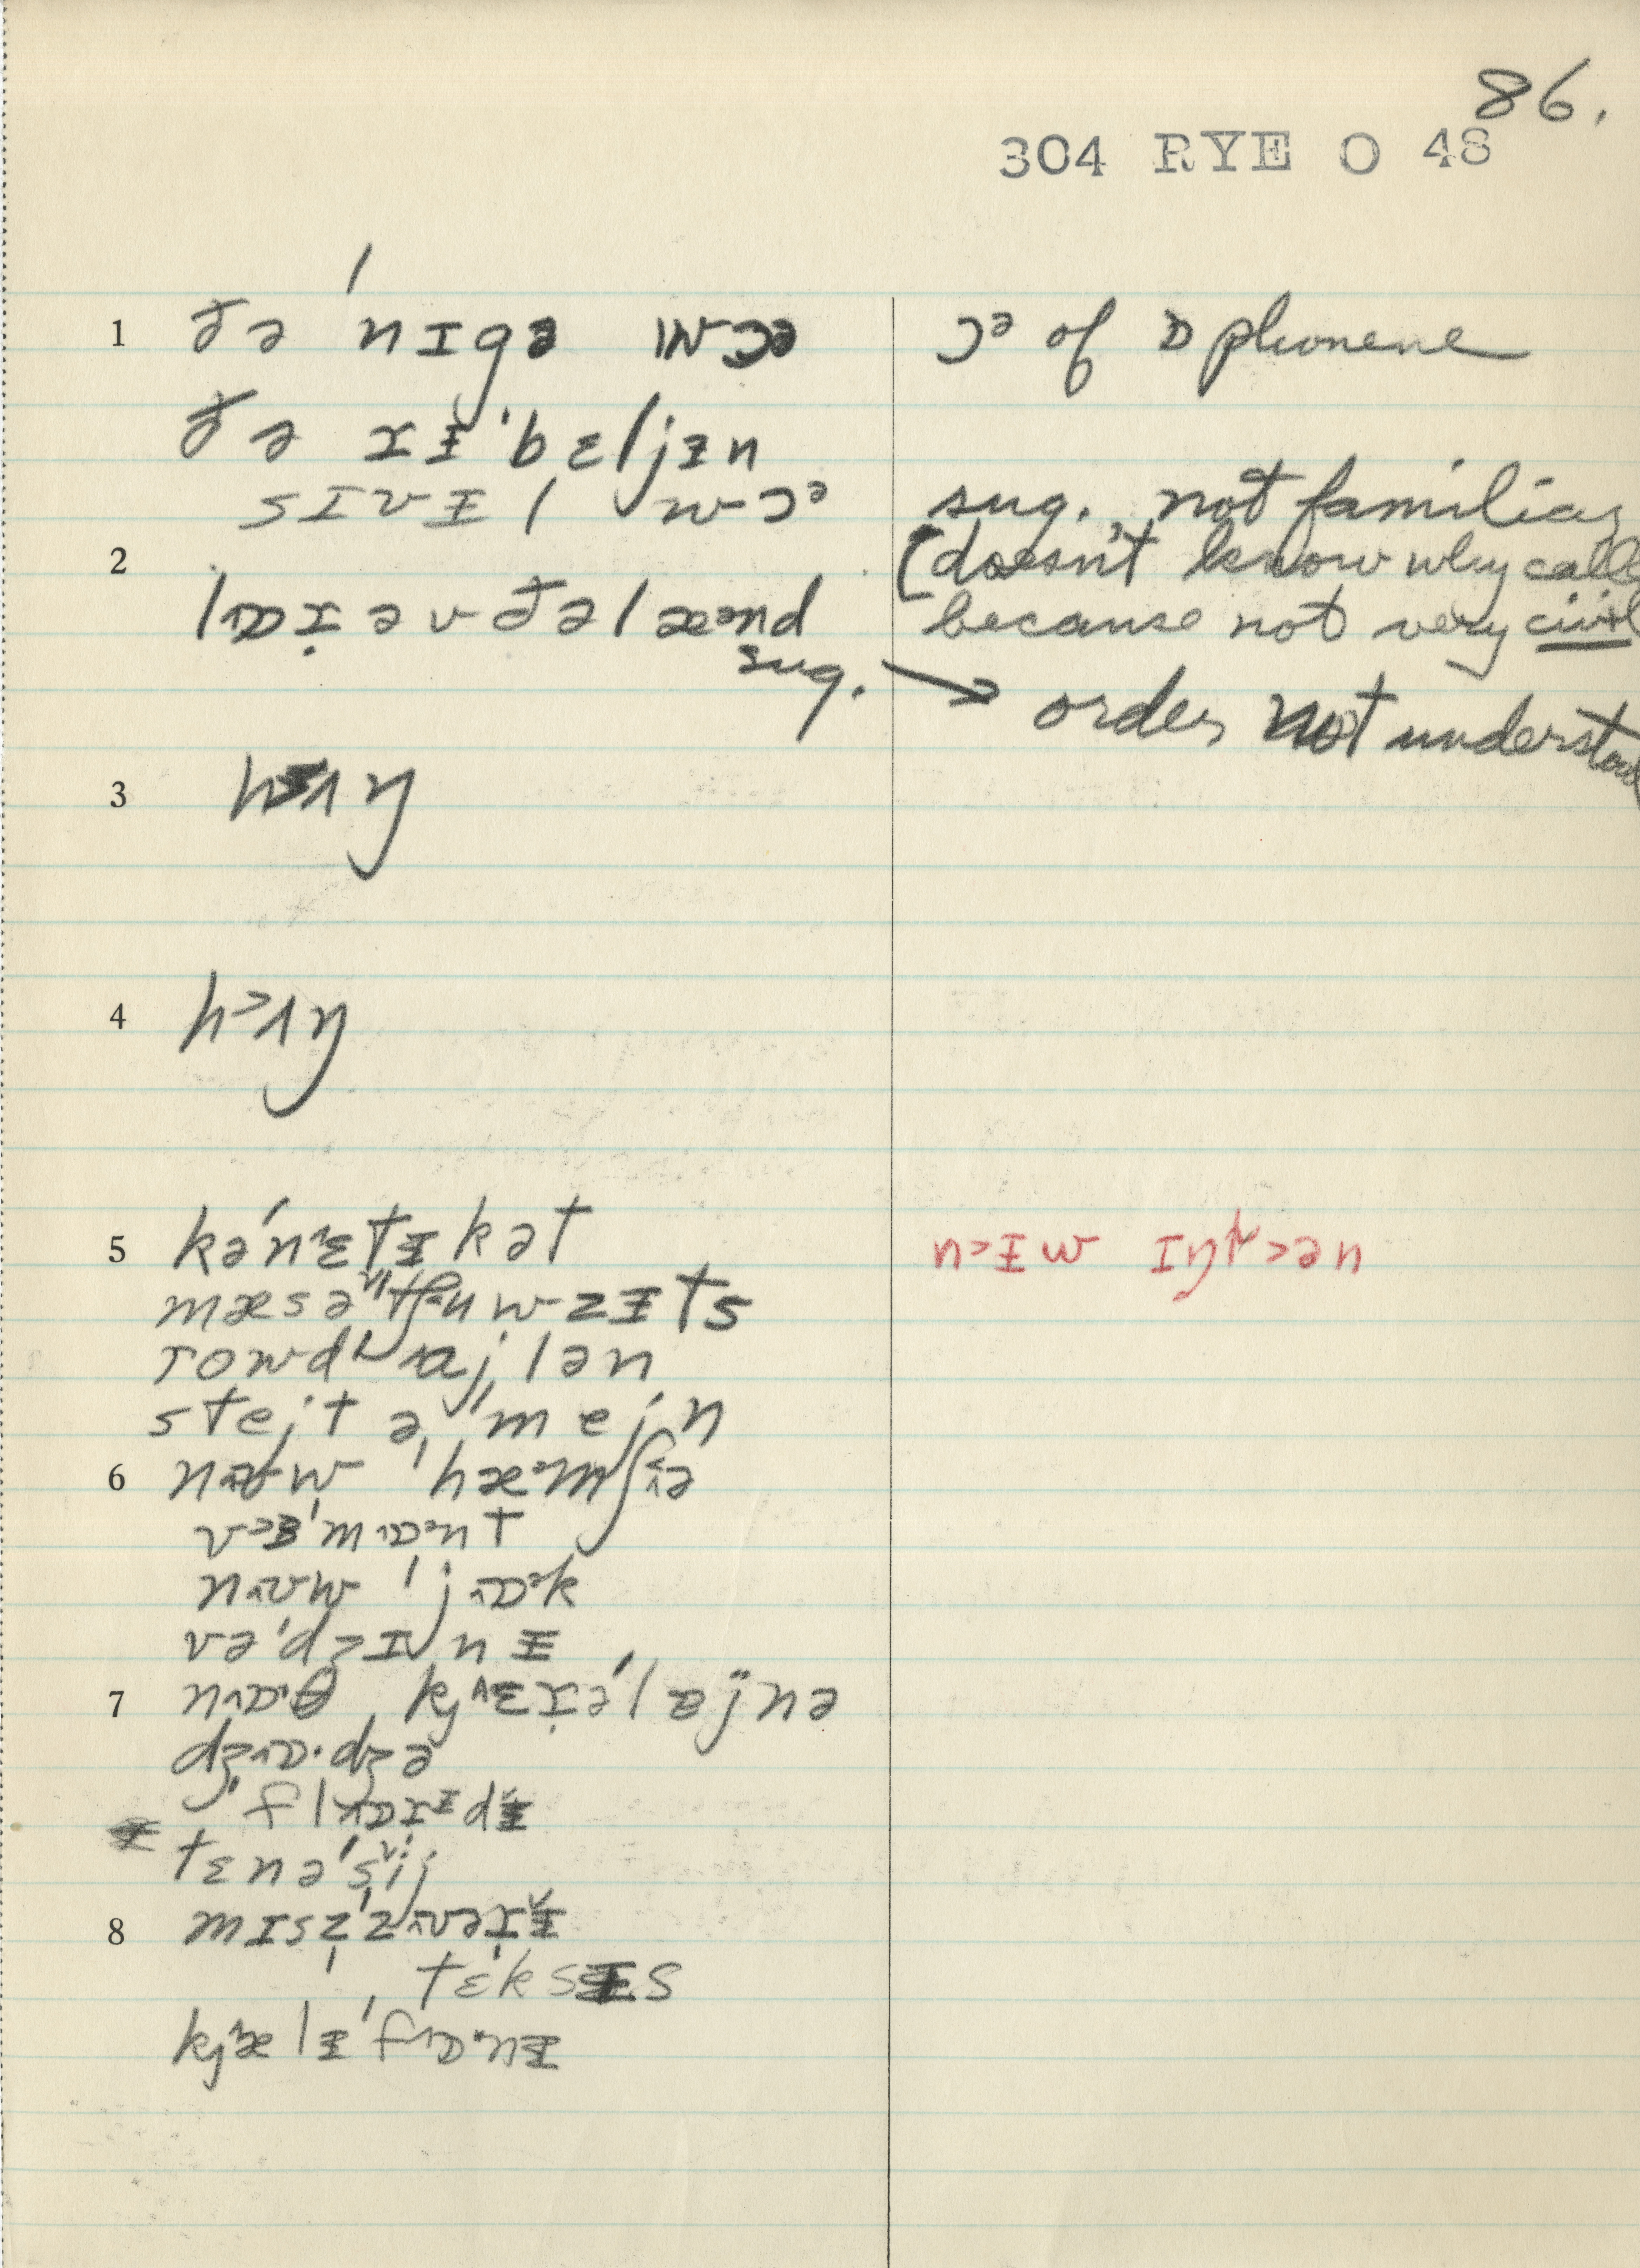 86.
304 RYE O 48
1 ðə ˈnɪgə wɔə ɔᵊ of ɒ phoneme
ðə ɹɪ̵ˈbɛljɪ̵n
sɪvɪ̵l wɔᵊ sug. not familiar
2 (doesn't know why calle
lɒɹ̣əvðəlæᵊnd because not very civil
sug. → order not understood
3 h ʌŋ
4 h˃ʌŋ
5 kəˈnɛtɪ̵kət n˃ɪ̵w ɪŋl˃ən
mæsəˈtʃuwzɪ̵ts
rowdˈajlən
stejt ə ˈmejn
6 næw ˈhæᵊmpʃɪə
v˃ɜˈmɒᵊnt
nʊw ˈjɒᵊk
vəˈdʒɪnɪ̵
7 nɒˑθ kjɛɹ̣əˈlajnə
dʒɒˑdʒə
ˈflɒɹɪ̵dɪ̵
tɛnəˈsij
8 mɪsẓˈzʊəɹɪ̵
tɛksɪ̵s
kjælɪ̵ˈfɒˑnɪ̵